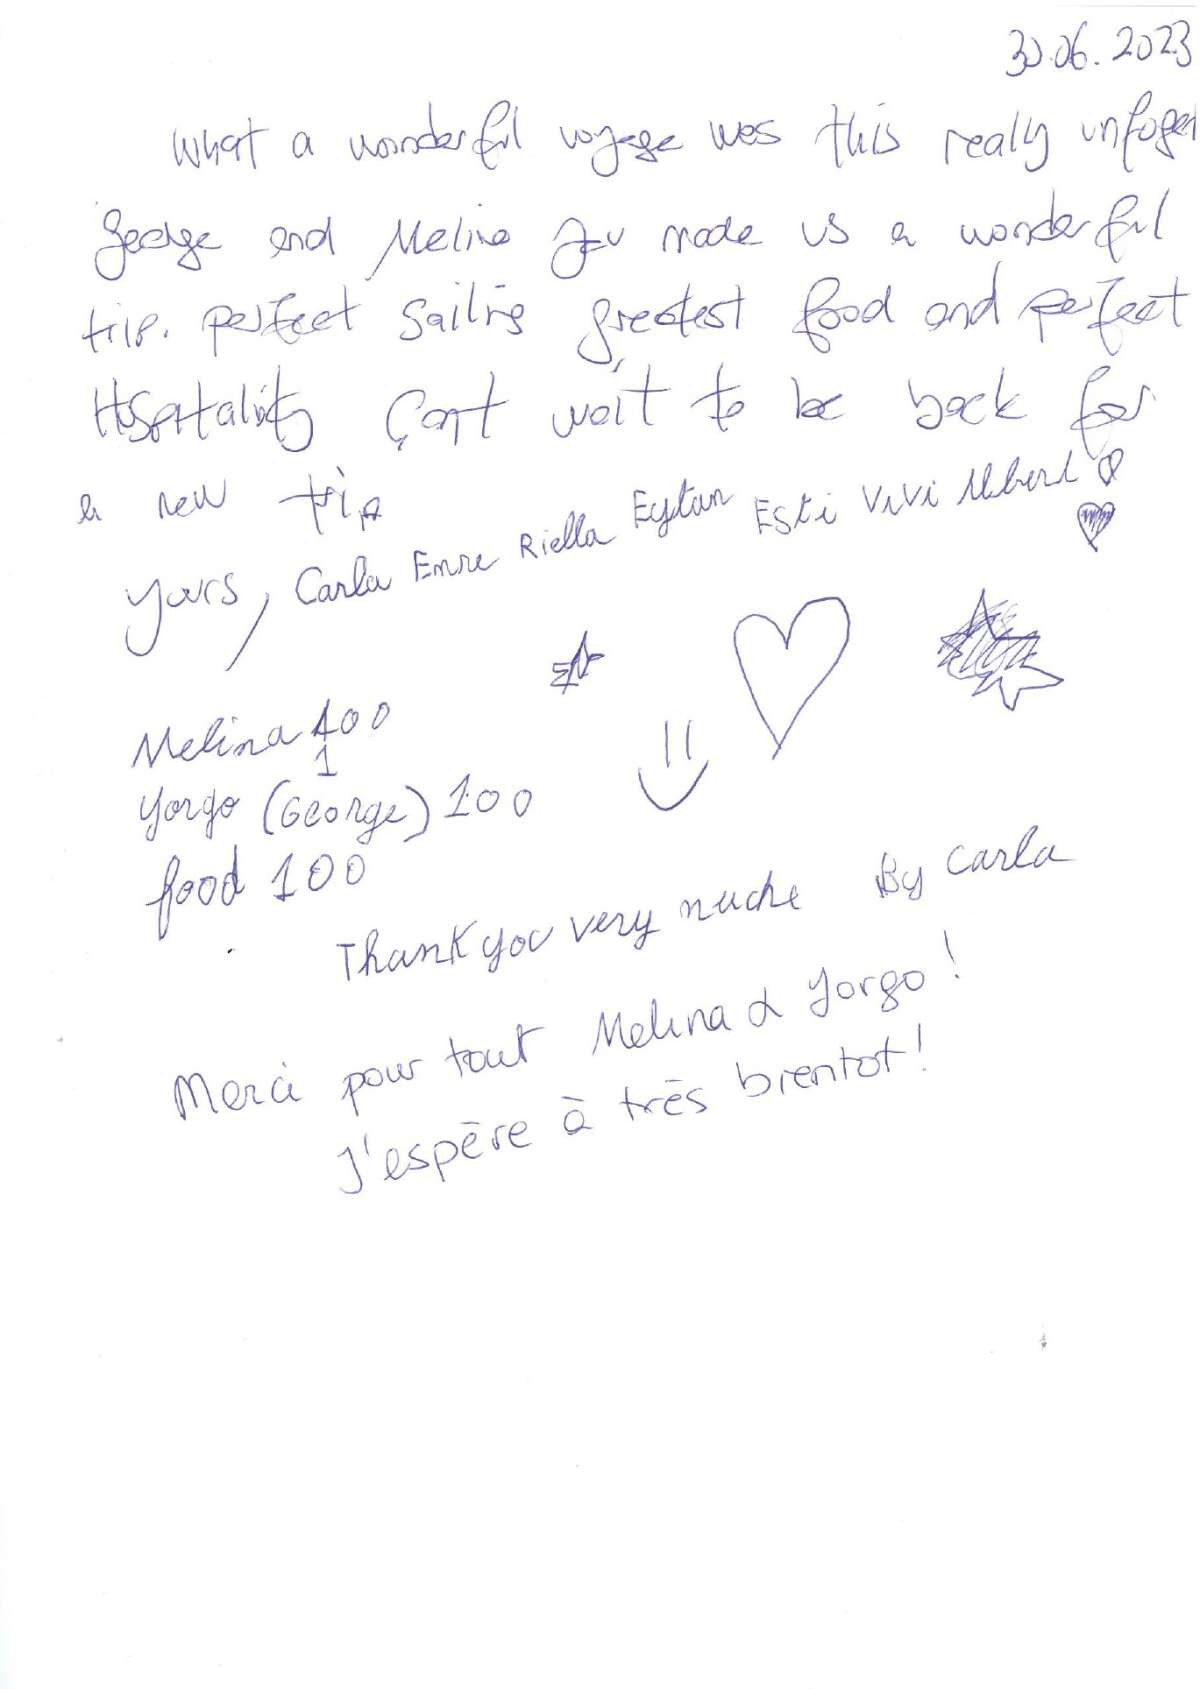 30.06.2023
What a wonderful voyage was this really unfoge
George and Melina you made us a wonderful
trip. perfect sailing greatest food and perfect
Hospitality Can't wait to be back for
a new trip
yours, Carla Emre Riella Eytan Esti ViVi Albert
Melina 100
1
Yorgo (George) 100
food 100
Thank you very muche By Carla
Merci pour tout Melina & Yorgo!
J'espère à très bientot!